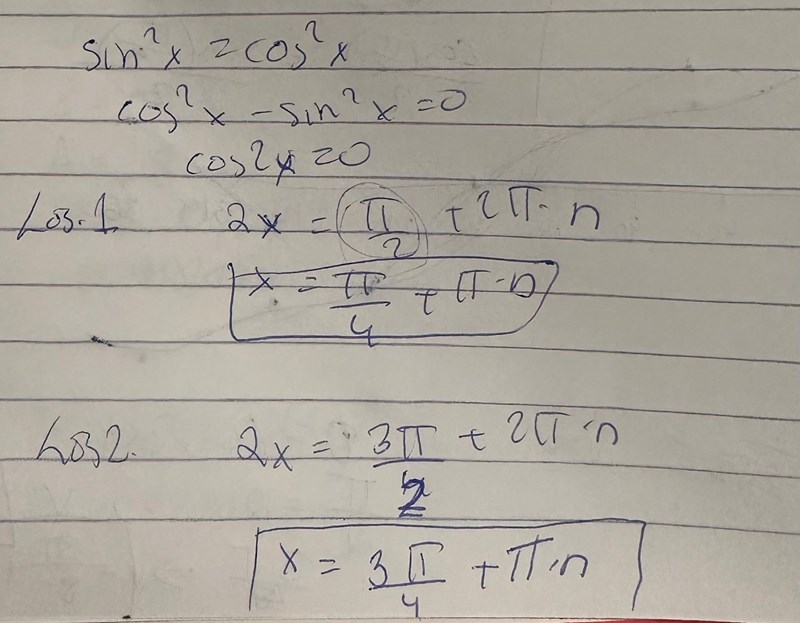 sin²x = cos²x
cos²x - sin²x = 0
cos2x = 0
Løs. 1 2x = π/2 + 2π · n
x = π/4 + π · n
Løs 2. 2x = 3π/2 + 2π · n
x = 3π/4 + π · n